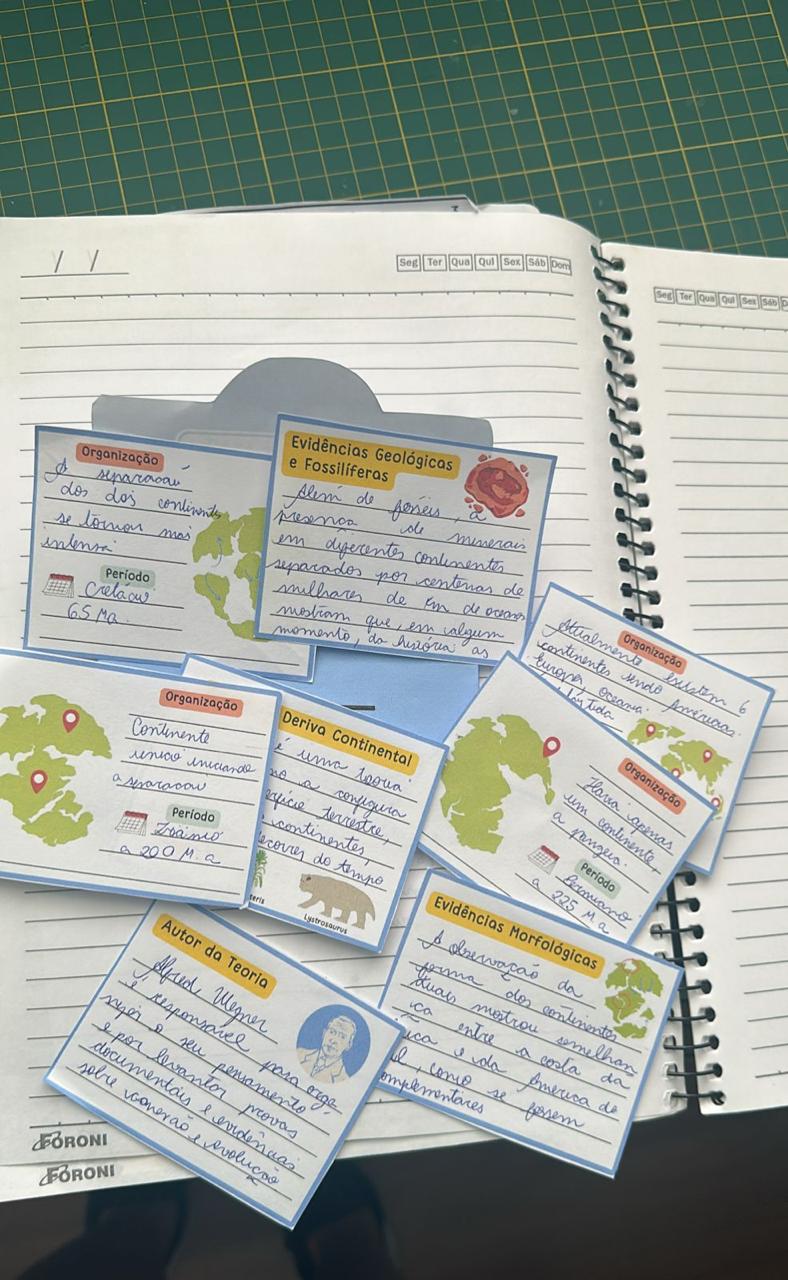 Seg Ter Qua Qui Sex Sáb Dom
Seg Ter Qua Qui Sex Sáb
Organização
A separacaú
dos dois continentes
se tornou mais
intensa
Período
Cretáceo
65 Ma.
Evidências Geológicas
e Fossilíferas
Além de fósseis, a
presença de minerais
em diferentes continentes
separados por centenas de
milhares de Km de oceanos
mostram que, em algum
momento, da história as
Organização
Atualmente existem 6
continentes sendo América
Europa, oceania
Organização
Continente
unico iniciando
a separacau
Período
a 200 M. a
Deriva Continental
é uma teoria
a configura
terrestre,
continentes,
do tempo
teris
Lystrosaurus
Organização
Havia apenas
um continente,
a pangeia.
Período
Permiano
a 225 M. a
Autor da Teoria
Alfred Wegner
é responsável para orga-
o seu pensamento
e por levantar provas
documentais e evidências
sobre conexão e evolução
Evidências Morfológicas
A observação da
forma dos continentes
tuais mostrou semelhan
ica entre a costa da
ica e da América de
ul, como se fossem
omplementares
FORONI
FORONI